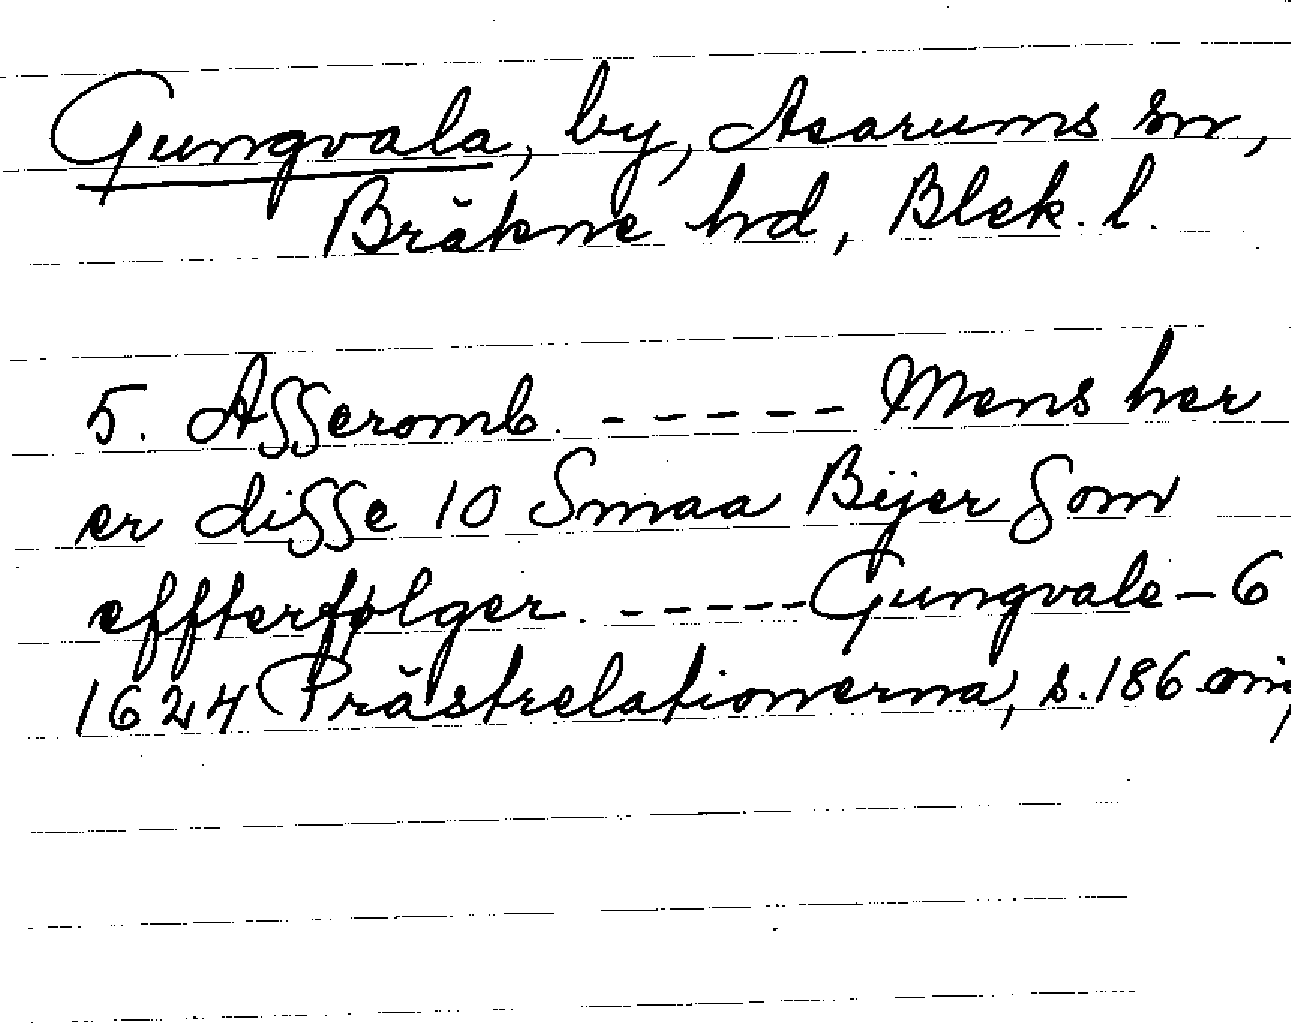 Gungvala, by, Asarums sn,
Bräkne hd, Blek. l.
5. Asseromb. ----- Mens her
er disse 10 Smaa Bÿer Som
effterfølger. -----Gungvale - 6
1624 Prästrelationerna, s. 186